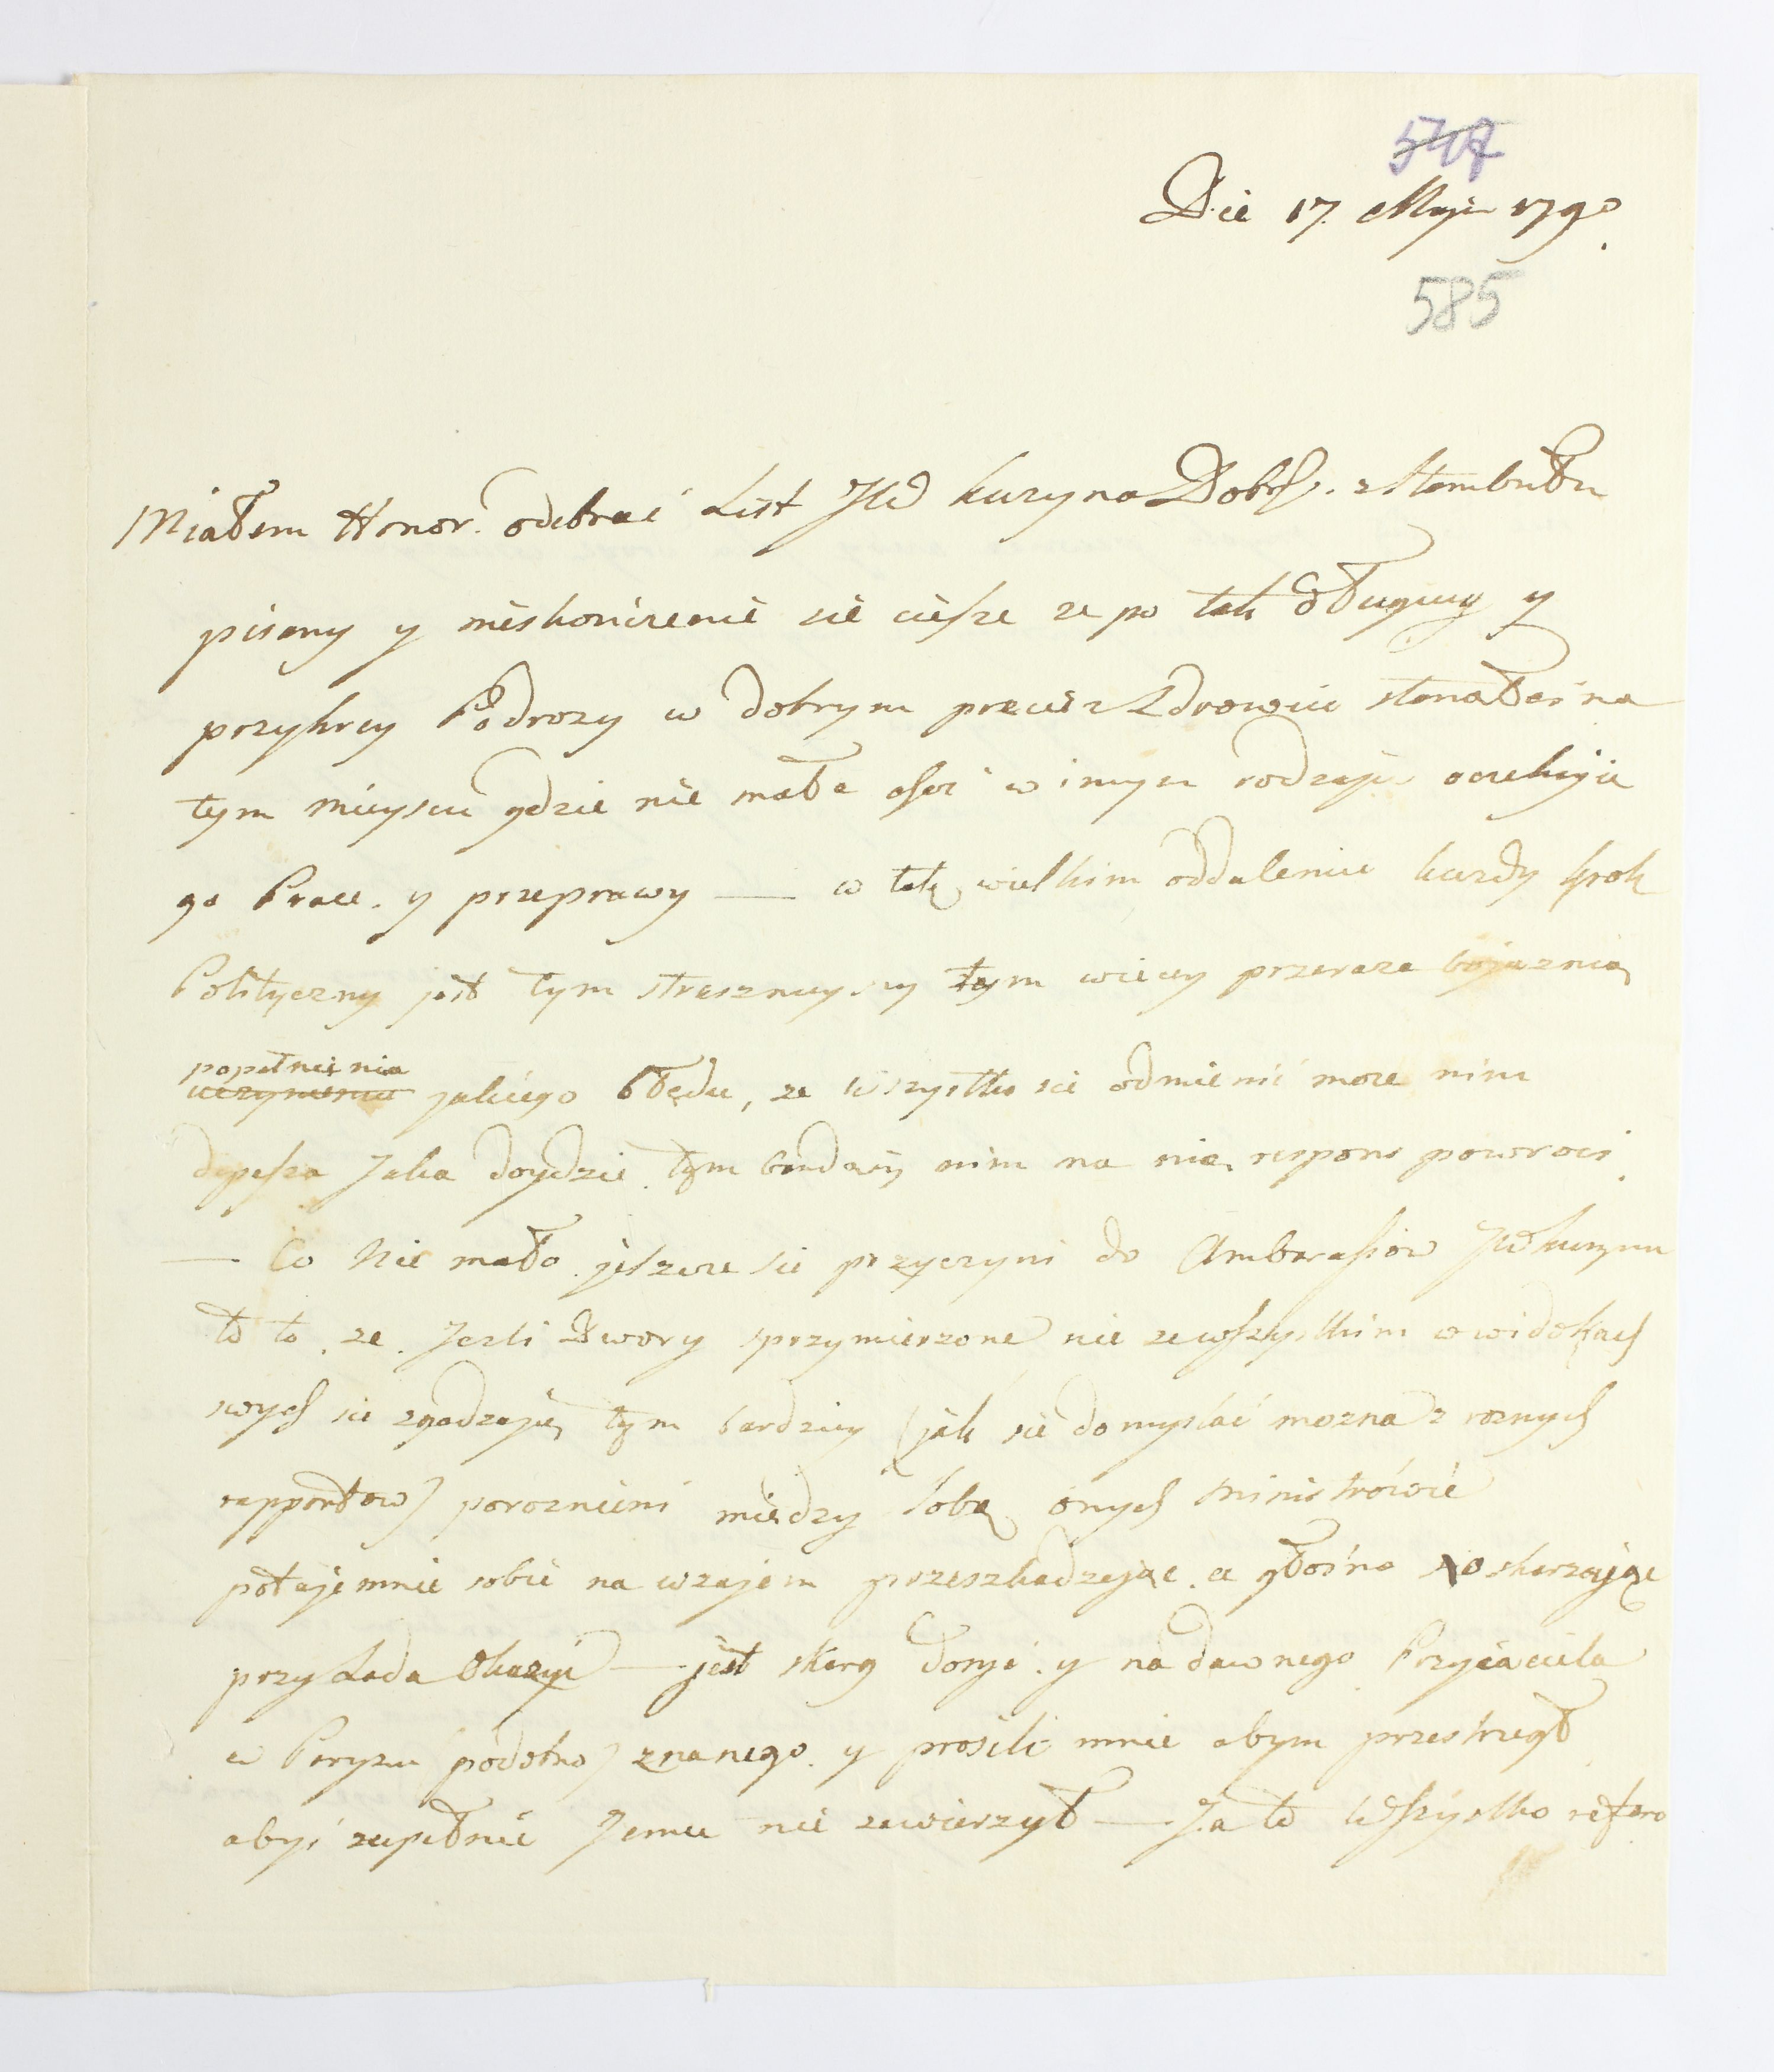 547
Die 17. Maja 1790.
585
Miałem Honor. odebrać List JW kuzyna Dobr. z Stambułu
pisany y nieskonczenie sie ciesze ze po tak długiey y
przykrey Podrozy w dobrym przecie Zdrowiu stanąłes na
tym mieyscu gdzie nie mała w innym rodzaju oczekuje
go Prace. y przeprawy — w tak wielkim oddaleniu kazdy krok
Polityczny jest tym straszneyszy tym wiecy przeraza bojaznią
popełnienia
uczynienia jakiego błędu, ze wszystko sie odmienić moze nim
depesza Jaka doydzie. tym bardziey nim na nią respons powroci.
— Co Nie mało jeszcze sie przyczyni do Ambarassow JW kuzyna
to to, ze. Jezli Dwory sprzymierzone nie ze wszystkim w widokach
swych sie zgadzaję tym bardziey (jak sie domyslać mozna z roznych
rapportow) poroznieni między Sobą onych Ministrowie
potajemnie sobie na wzajem przeszkadzając. a głosno oskarzając
przy Lada Okazyi — jest skarg y na dawnego Przyiaciela
w Paryzu podobno) znanego. y prosili mnie abym przestrzegł
abyś zupełnie Jemu nie zawierzył — Ja to Wszystko refero